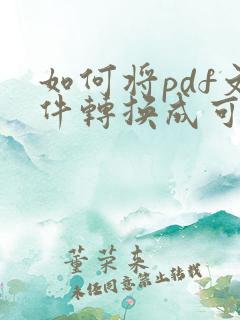 如何将pdf文
件轉換成可
董荣来
未经同意禁止转载